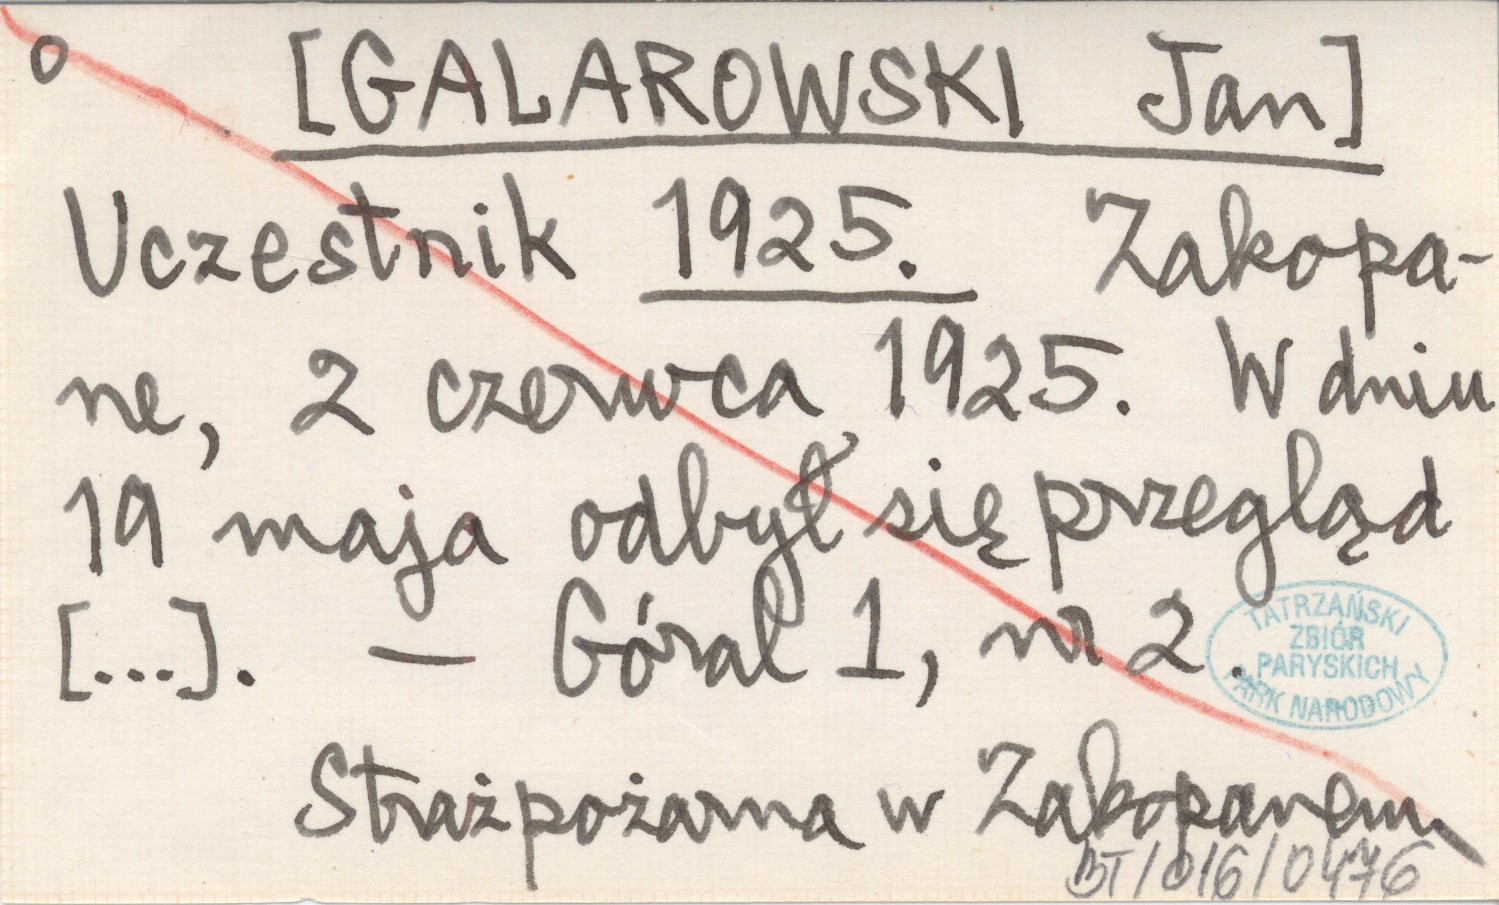 o [GALAROWSKI Jan]
Uczestnik 1925. Zakopa-
ne, 2 czerwca 1925. W dniu
19 maja odbył się przegląd
[...]. — Góral 1, nr 2.
TATRZAŃSKI
ZBIÓR
PARYSKICH
PARK NARODOWY
Straż pożarna w Zakopanem
BT/016/0476